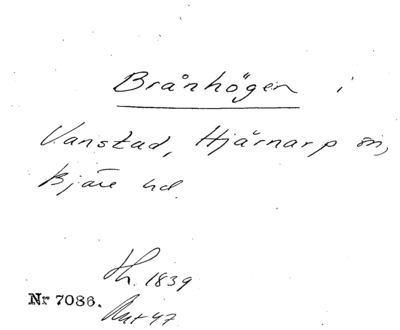 Brånhögen i
Vanstad, Hjärnarp sn,
Bjäre hd.
1839
Nr 7086.
47